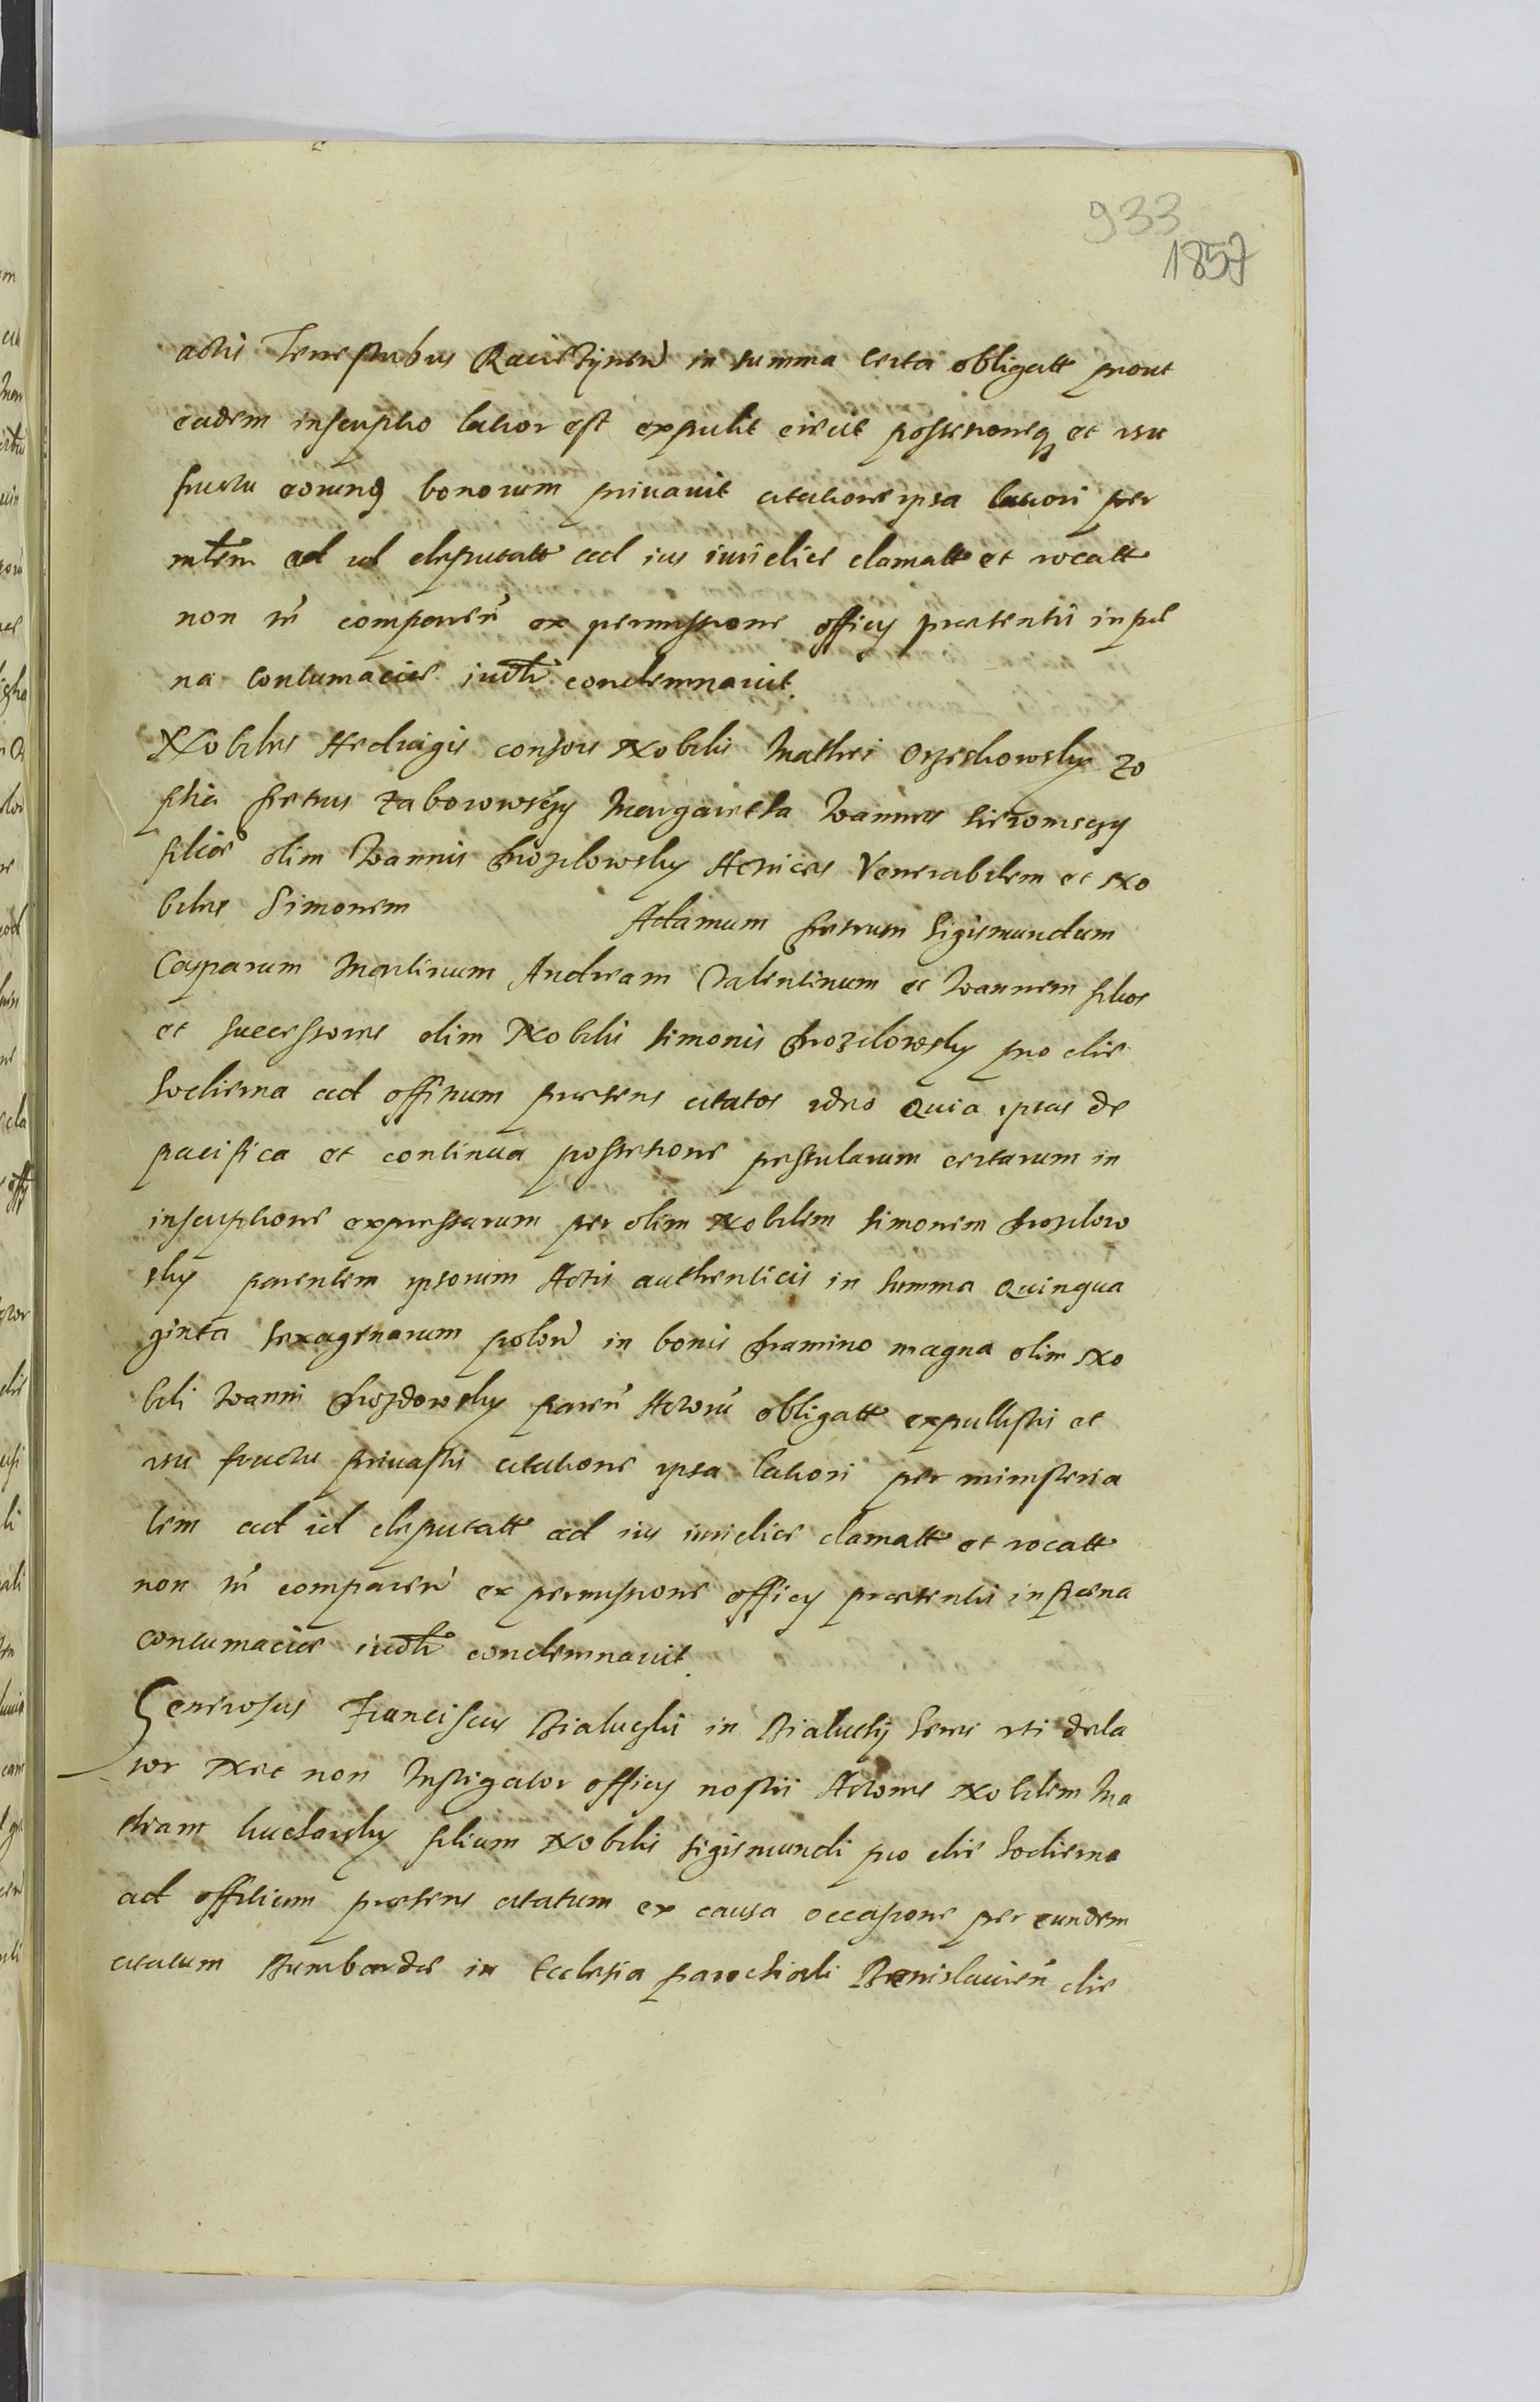 933
1857
actis Terrestribus Raciążnen̄ in summa certa obligatt prout
eadem inscriptio latior est expulit eiecit possessioneq̨ et usu
fructu eorundē bonorum privavit citatione ipsa latiori per
mtem ad id deputatt ad ius iuridice clamatt et vocatt
non tn̄ comparen̄ ex permissione officy praesentis in pœ
na contumaciae iudtr condemnavit.
Nobiles Hedvigis consors Nobilis Mathei Orzeskowsky Zo
phia Petrus Zaborowsczy Margaretha Ioannes
filiae olim Ioannis Drozdowsky Actrices Venerabilem et No
biles Simonem Adamum Petrum Sigismundum
Casparum Martinum Andream Valentinum et Ioannem filios
et successores olim Nobilis Simonis Drozdowsky pro die
hodierna ad officium praesens citatos ideo Quia ipsas de
pacifica et continua possessione pestularum certarum in
inscriptione expressarum per olim Nobilem Simonem Drozdow
sky parentem ipsorum Actis authenticis in Summa Quinqua
ginta sexagenarum polon̄ in bonis Dramino magna olim No
bili Ioanni Drozdowsky paren̄ Actorū obligatt expullistis et
usu fructu privastis citatione ipsa latiori per ministeria
lem ad id deputatt ad ius iuridice clamatt et vocatt
non tn̄ comparen̄ ex permissione officy praesentis in pœna
contumaciae iudtr condemnavit.
Generosus Franciscus Bialuski in Bialuty heres uti dela
tor Nec non Instigator officy nostri Actores Nobilem Ma
thiam filium Nobilis Sigismundi pro die hodierna
ad officium praesens citatum ex causa occasione per eundem
citatum Bombardae in Ecclesia parochiali die